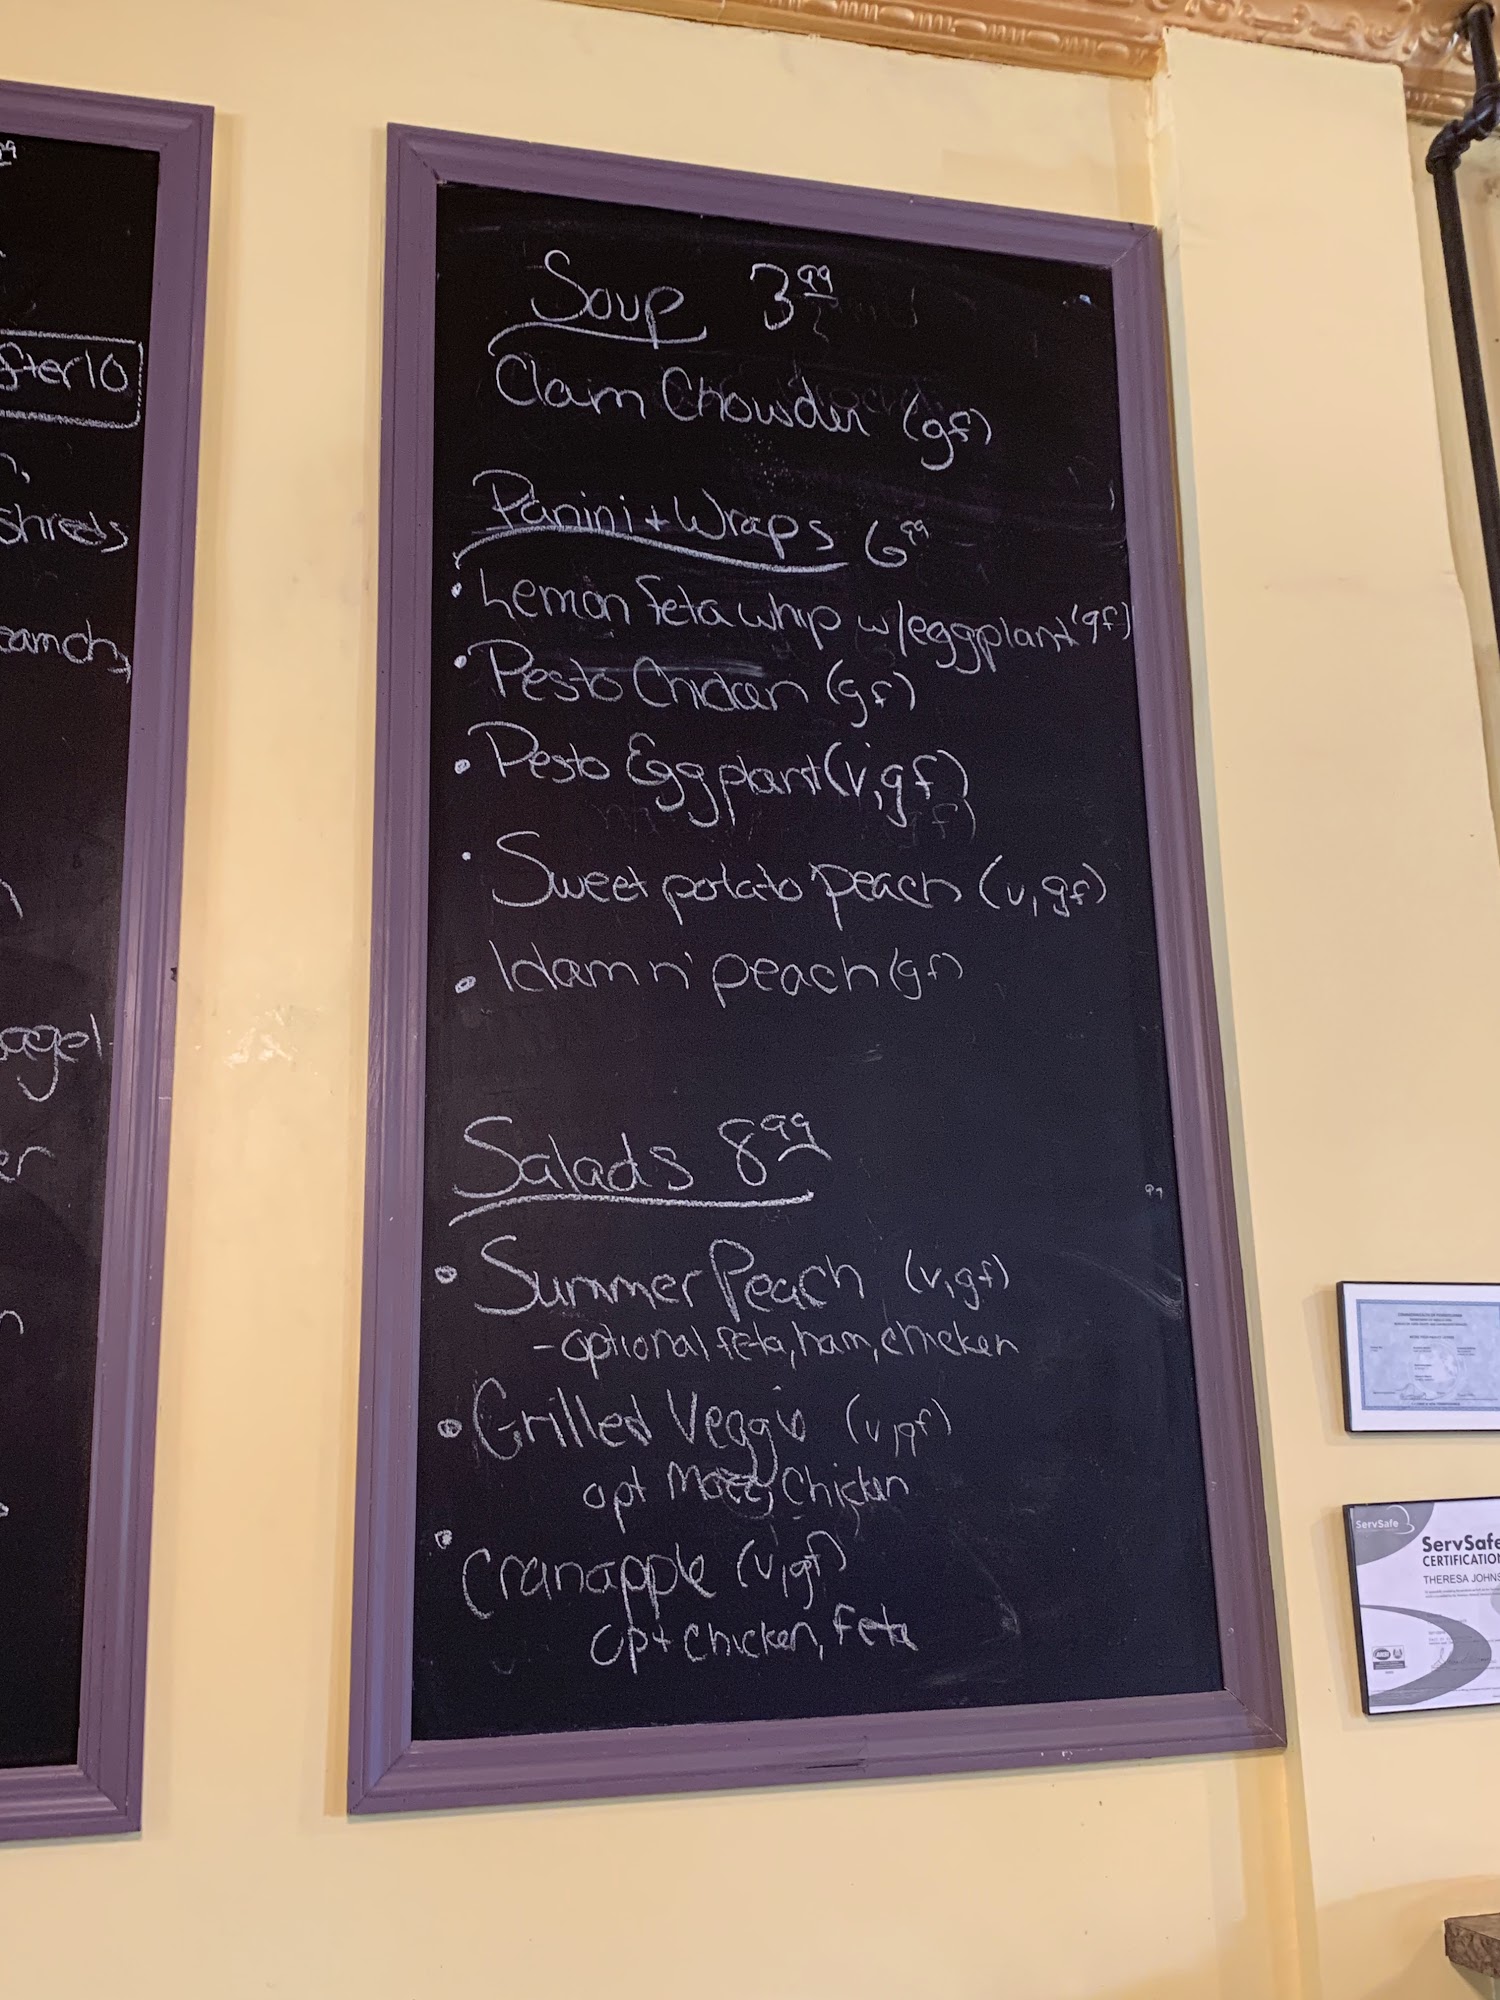 fter10
Shreds
Soup 3.99
Clam Chowder (gf)
Panini + Wraps 6.99
• Lemon feta whip w/eggplant (gf)
• Pesto Chicken (gf)
• Pesto Eggplant (v, gf)
• Sweet potato peach (v, gf)
• Ham n' peach (gf)
Salads 8.99
• Summer Peach (v, gf)
- optional feta, ham, chicken
• Grilled Veggie (v, gf)
opt Mozz, Chicken
• Cranapple (v, gf)
opt chicken, feta
agel
ServSafe
ServSafe
CERTIFICATION
THERESA JOHNS